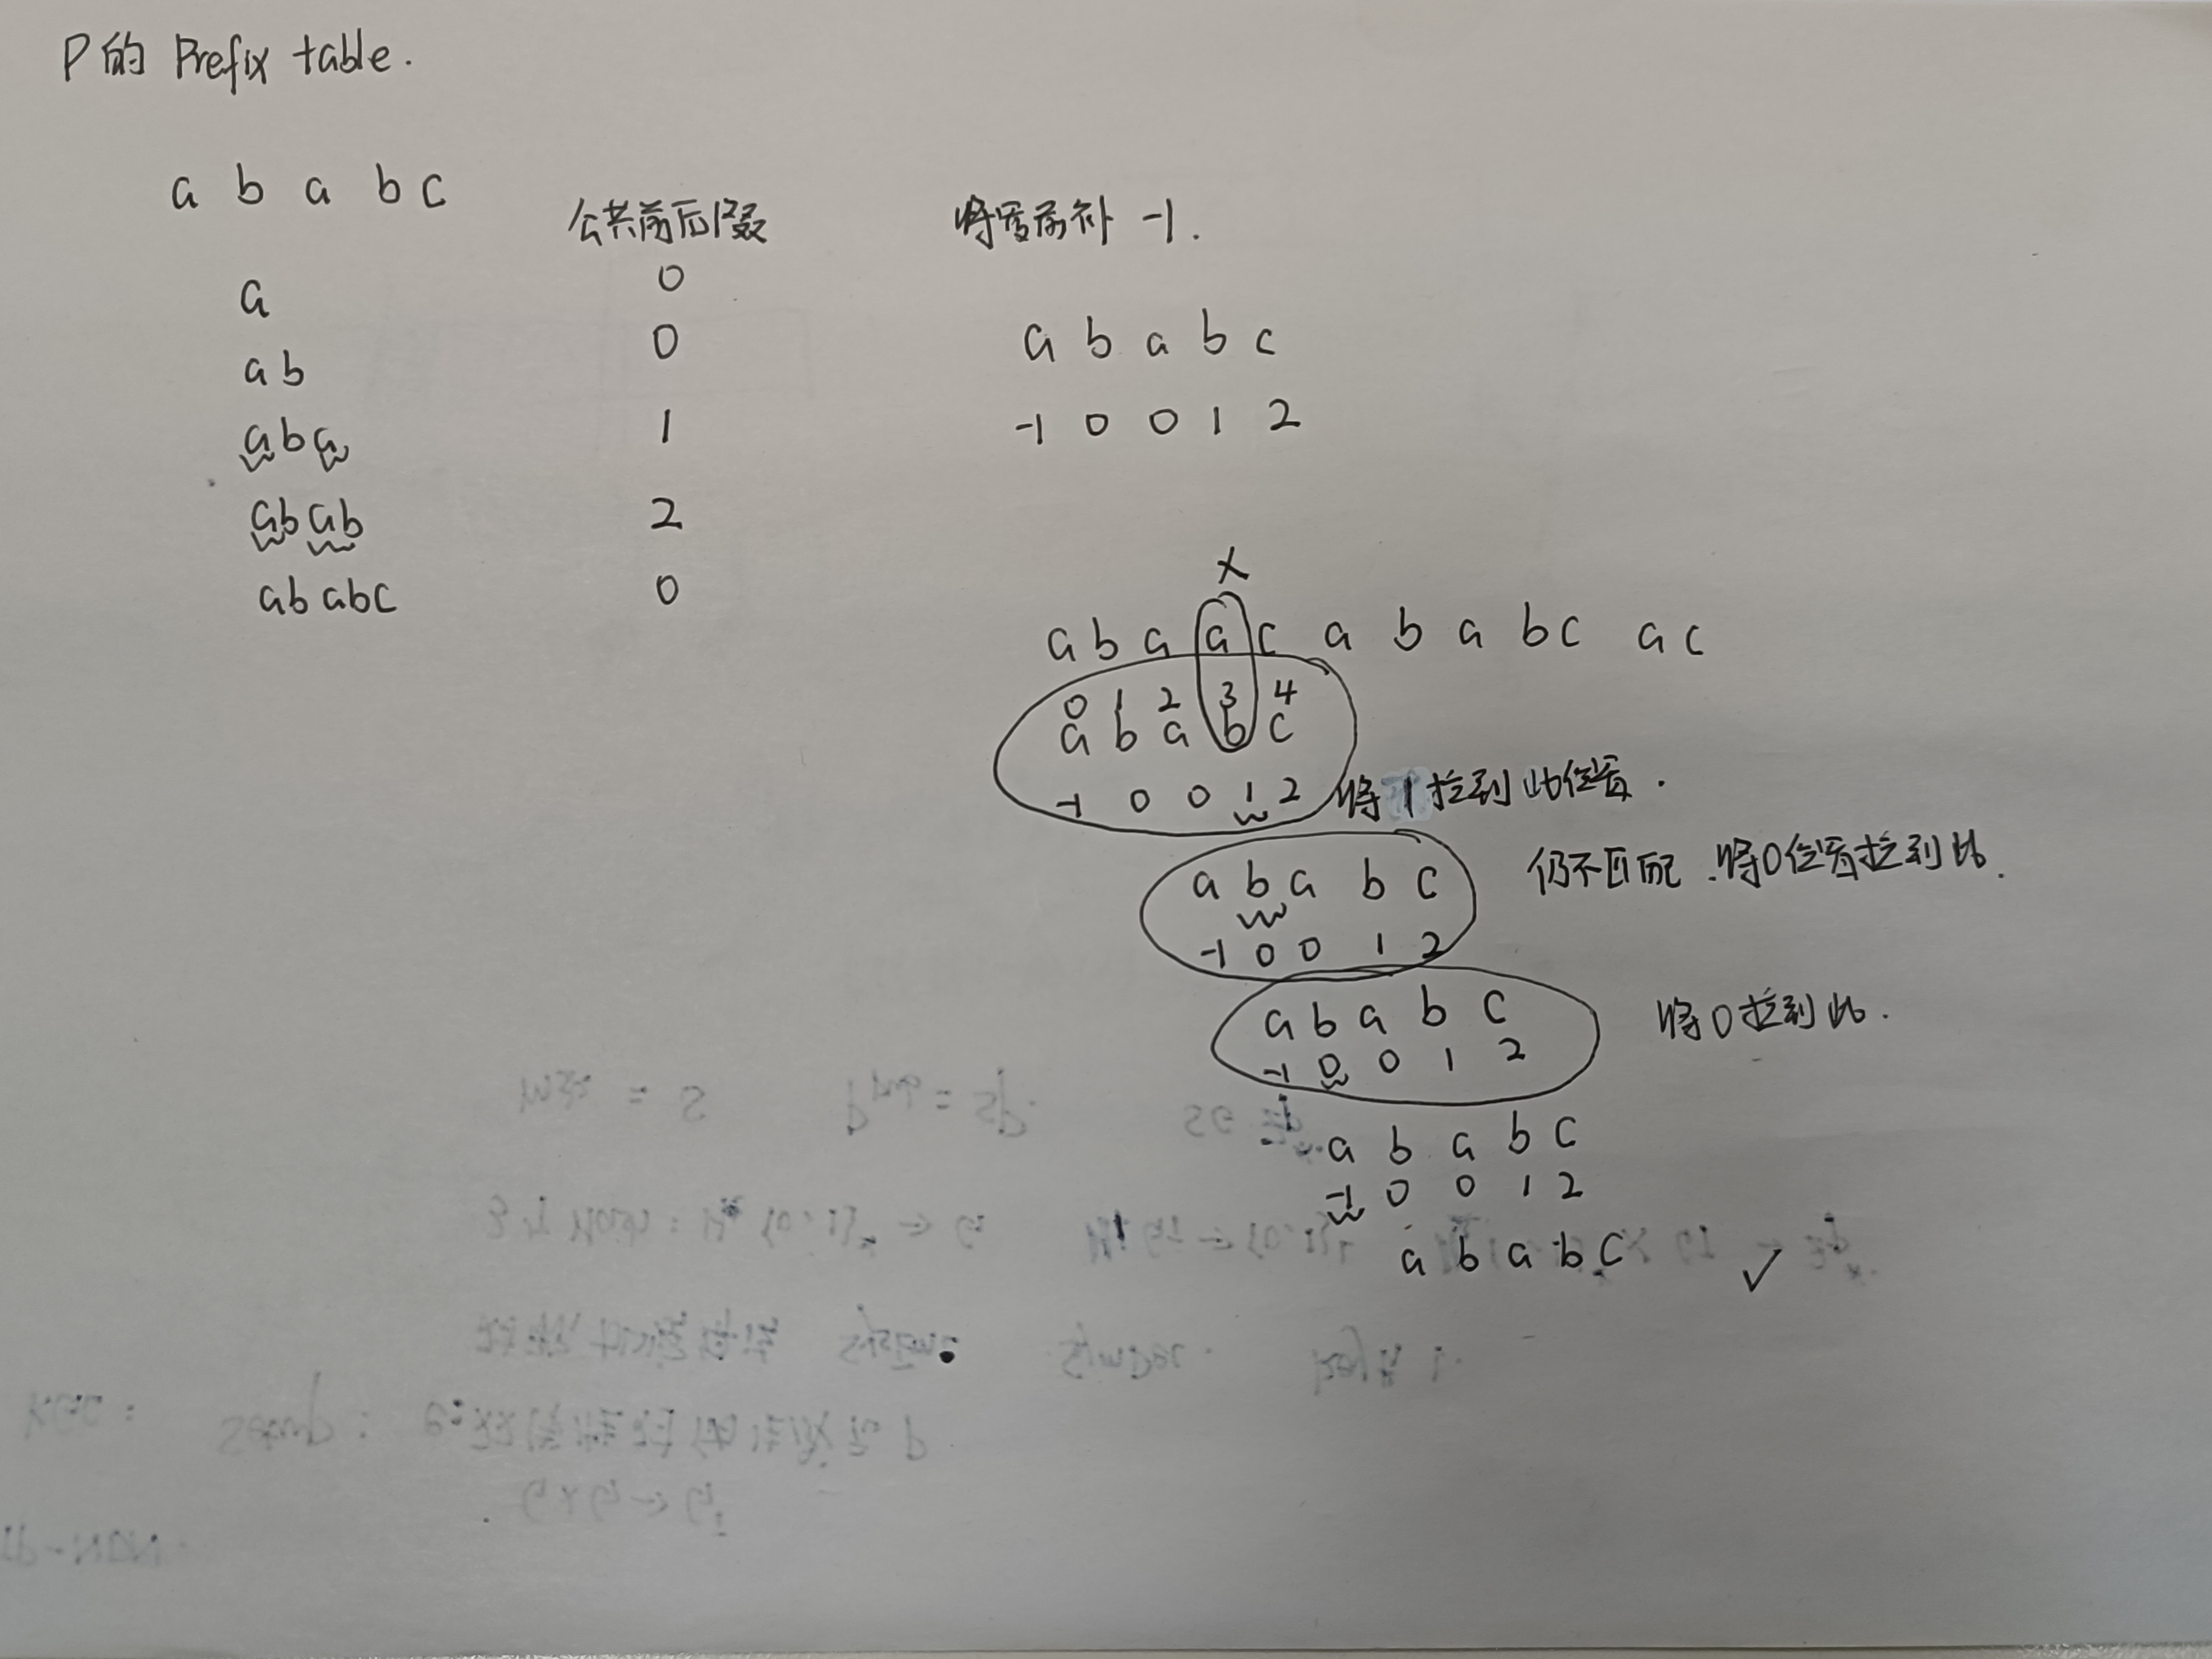 P的 Prefix table.
a b a b c
公共前后缀
将最前补 -1.
a 0
ab 0
aba 1
abab 2
ababc 0
a b a b c
-1 0 0 1 2
x
a b a a c a b a b c a c
0 1 2 3 4
a b a b c
-1 0 0 1 2 将1拉到此位置.
a b a b c 仍不匹配.将0位置拉到此.
-1 0 0 1 2
a b a b c 将0拉到此.
-1 0 0 1 2
a b a b c
-1 0 0 1 2
a b a b c ✓